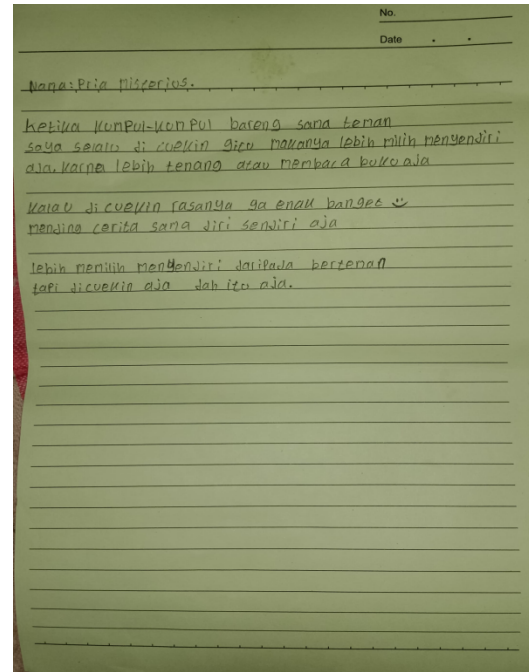 No.
Date
Nama: Pria Misterius.
ketika kumpul-kumpul bareng sama teman
saya selalu di cuekin gitu makanya lebih milih menyendiri
aja. karna lebih tenang atau membaca buku aja
kalau di cuekin rasanya ga enak banget
mending cerita sama diri sendiri aja
lebih memilih menyendiri daripada berteman
tapi dicuekin aja dah itu aja.